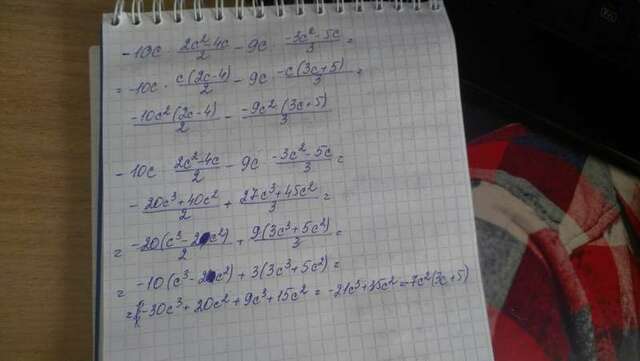 -10c · \frac{2c²-4c}{2} - 9c · \frac{-3c²-5c}{3} =
= -10c · \frac{c(2c-4)}{2} - 9c · \frac{-c(3c+5)}{3} =
\frac{-10c²(2c-4)}{2} - \frac{-9c²(3c+5)}{3}
-10c · \frac{2c²-4c}{2} - 9c · \frac{-3c²-5c}{3} =
-\frac{20c³+40c²}{2} + \frac{27c³+45c²}{3} =
= \frac{-20(c³-2c²)}{2} + \frac{9(3c³+5c²)}{3} =
= -10(c³-2c²) + 3(3c³+5c²) =
= -30c³+20c²+9c³+15c² = -21c³+35c² = -7c²(3c+5)